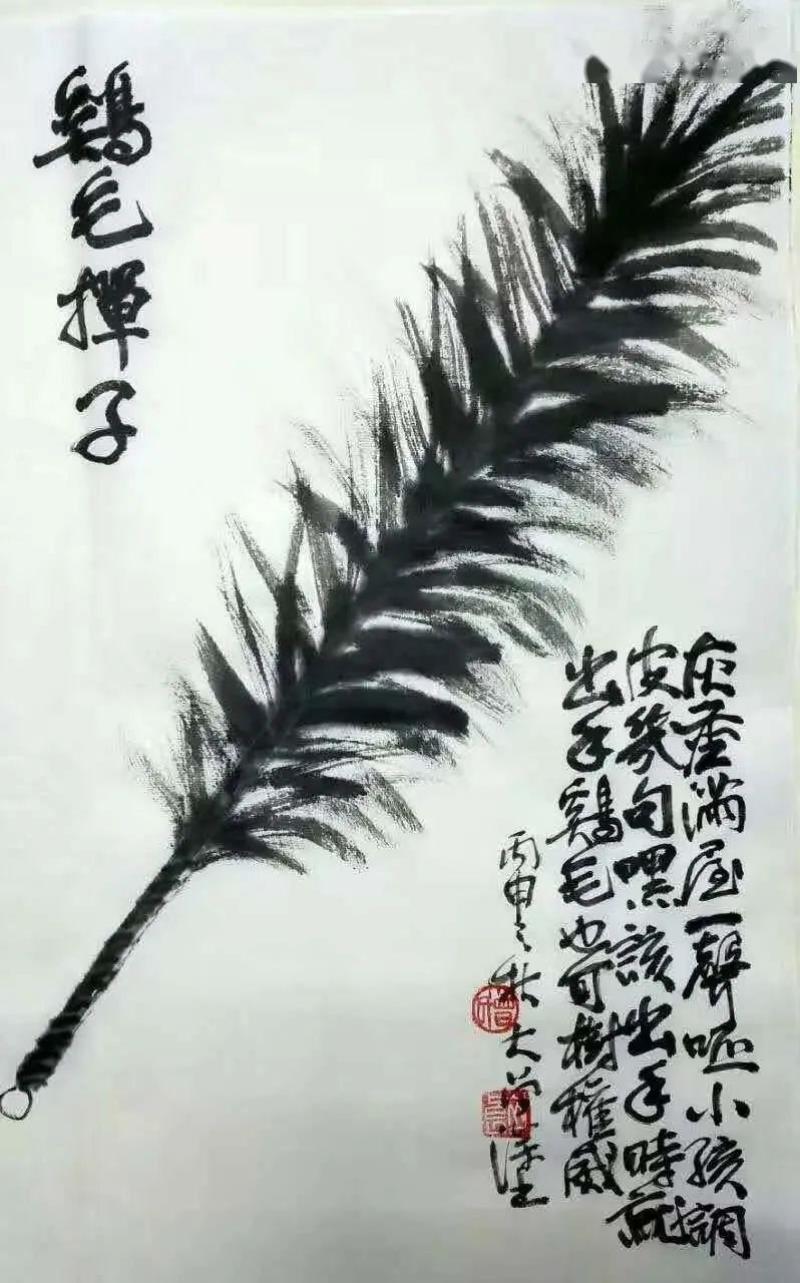 鷄毛撣子
灰塵滿屋一聲呸小孩調
皮幾句嘿該出手時就
出手鷄毛也可樹權威
丙申之秋大